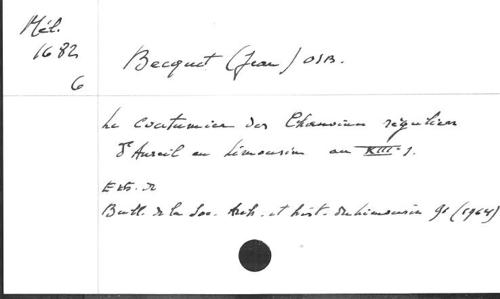 Mél.
1682
6
Becquet (Jean) OSB.
Le coutumier des Chanoines réguliers
d'Aureil en Limousin au XIII s.
Ext. de
Bull. de la Soc. Arch. et hist. du Limousin 91 (1964)